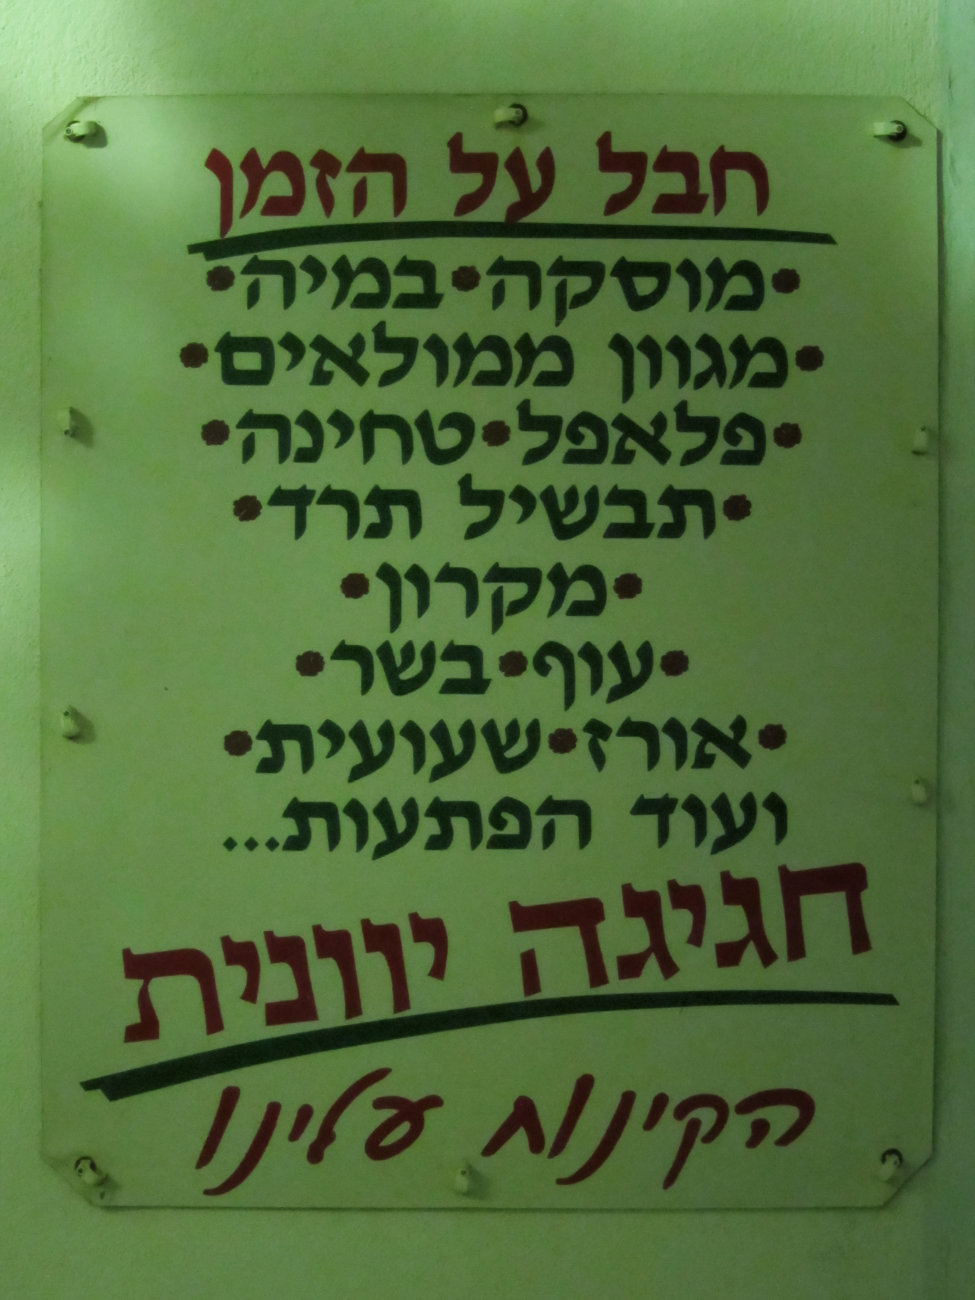 חבל על הזמן
•מוסקה•במיה•
•מגוון ממולאים•
•פלאפל•טחינה•
•תבשיל תרד•
•מקרון•
•עוף•בשר•
•אורז•שעועית•
ועוד הפתעות...
חגיגה יוונית
הקינוח עלינו